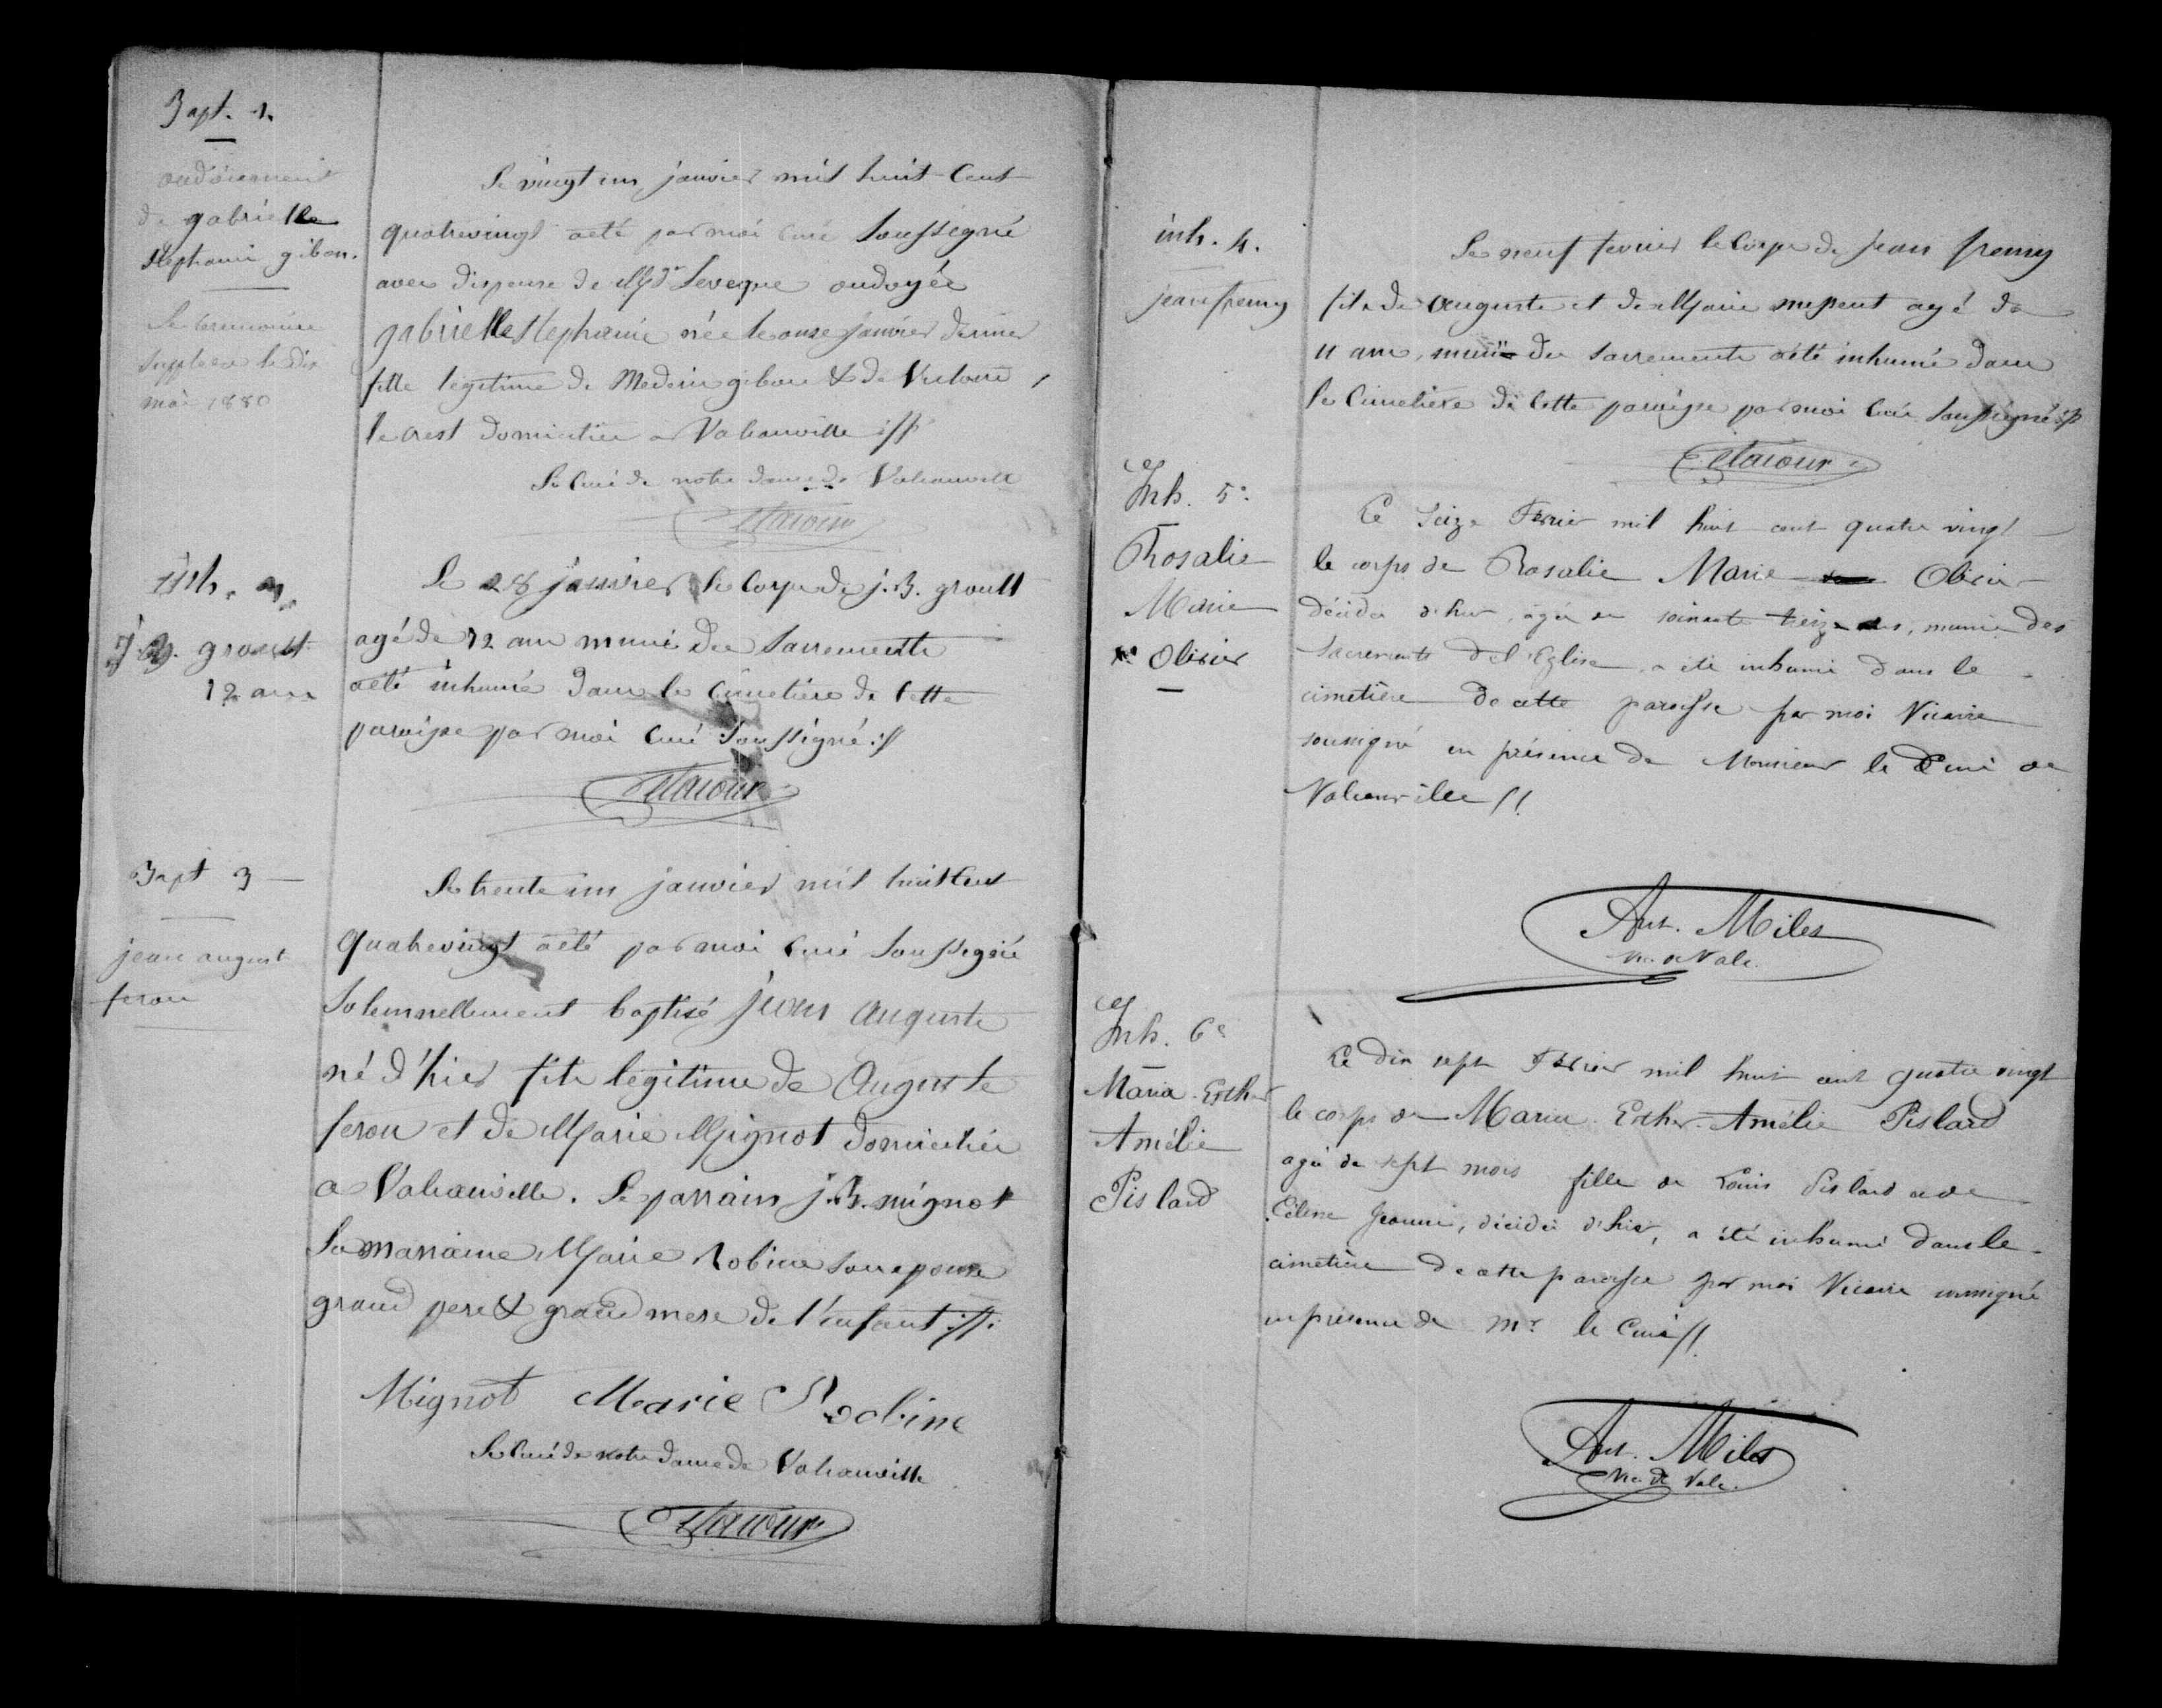 Bapt. 1.
ondoiement
de gabrielle
Stephanie gibon.
Le ceremonies
supplees le dix
mai 1880
Le vingt un janvier mil huit Cent
quatrevingt aeté par moi curé Soussigné
avec dispense de Mgr Leveque ondoyée
gabrielle Stephanie née le onze janvier dernier
fille legitime de Mederic gibon & de Victoire
lecrest domiciliée a Valcanville
Le Curé de notre dame de Valcanville
inh. 2.
J. B. groult
72 ans
Le 28 janvier le Corps de j. B. groult
agé de 72 ans muni des Sacrements
aeté inhumé dans le Cimetiere de Cette
paroisse par moi Curé Soussigné
Bapt 3
jean august
feron
Le trente un janvier mil huit Cent
quatrevingt aeté par moi curé Soussigné
Solennellement baptisé jean auguste
né d'hier fils légitime de Auguste
feron et de Marie Mignot domiciliés
a Valcanville. Le parrain j. B. mignot
La marraine Marie Robine son epouse
grand pere & grand mere de l'enfant
Mignot Marie Robine
Le Curé de notre dame de Valcanville
inh. 4.
jean fremy
Le neuf fevrier le Corps de jean fremy
fils de auguste et de Marie agé de
11 ans, muni des sacrements aété inhumé dans
le Cimetiere de Cette paroisse par moi Curé Soussigné
Inh. 5e
Rosalie
Marie
Olivier
Le Seize Février mil huit cent quatre vingt
le corps de Rosalie Marie Olivier
décédée d'hier, agée de soixante treize ans, munie des
Sacrements de l'Eglise, a été inhumé dans le
cimetière de cette paroisse par moi Vicaire
soussigné en présence de Monsieur le Curé de
Valcanville
Ant. Miles
Vic. de Valc.
Inh. 6e
Maria Esther
Amélie
Pislard
Le dix sept Février mil huit cent quatre vingt
le corps de Maria Esther Amélie Pislard
agée de sept mois fille de Louis Pislard et de
Céline Jeanne, décédée d'hier, a été inhumé dans le
cimetière de cette paroisse par moi Vicaire soussigné
en présence de Mr le Curé
Ant. Miles
Vic. de Valc.